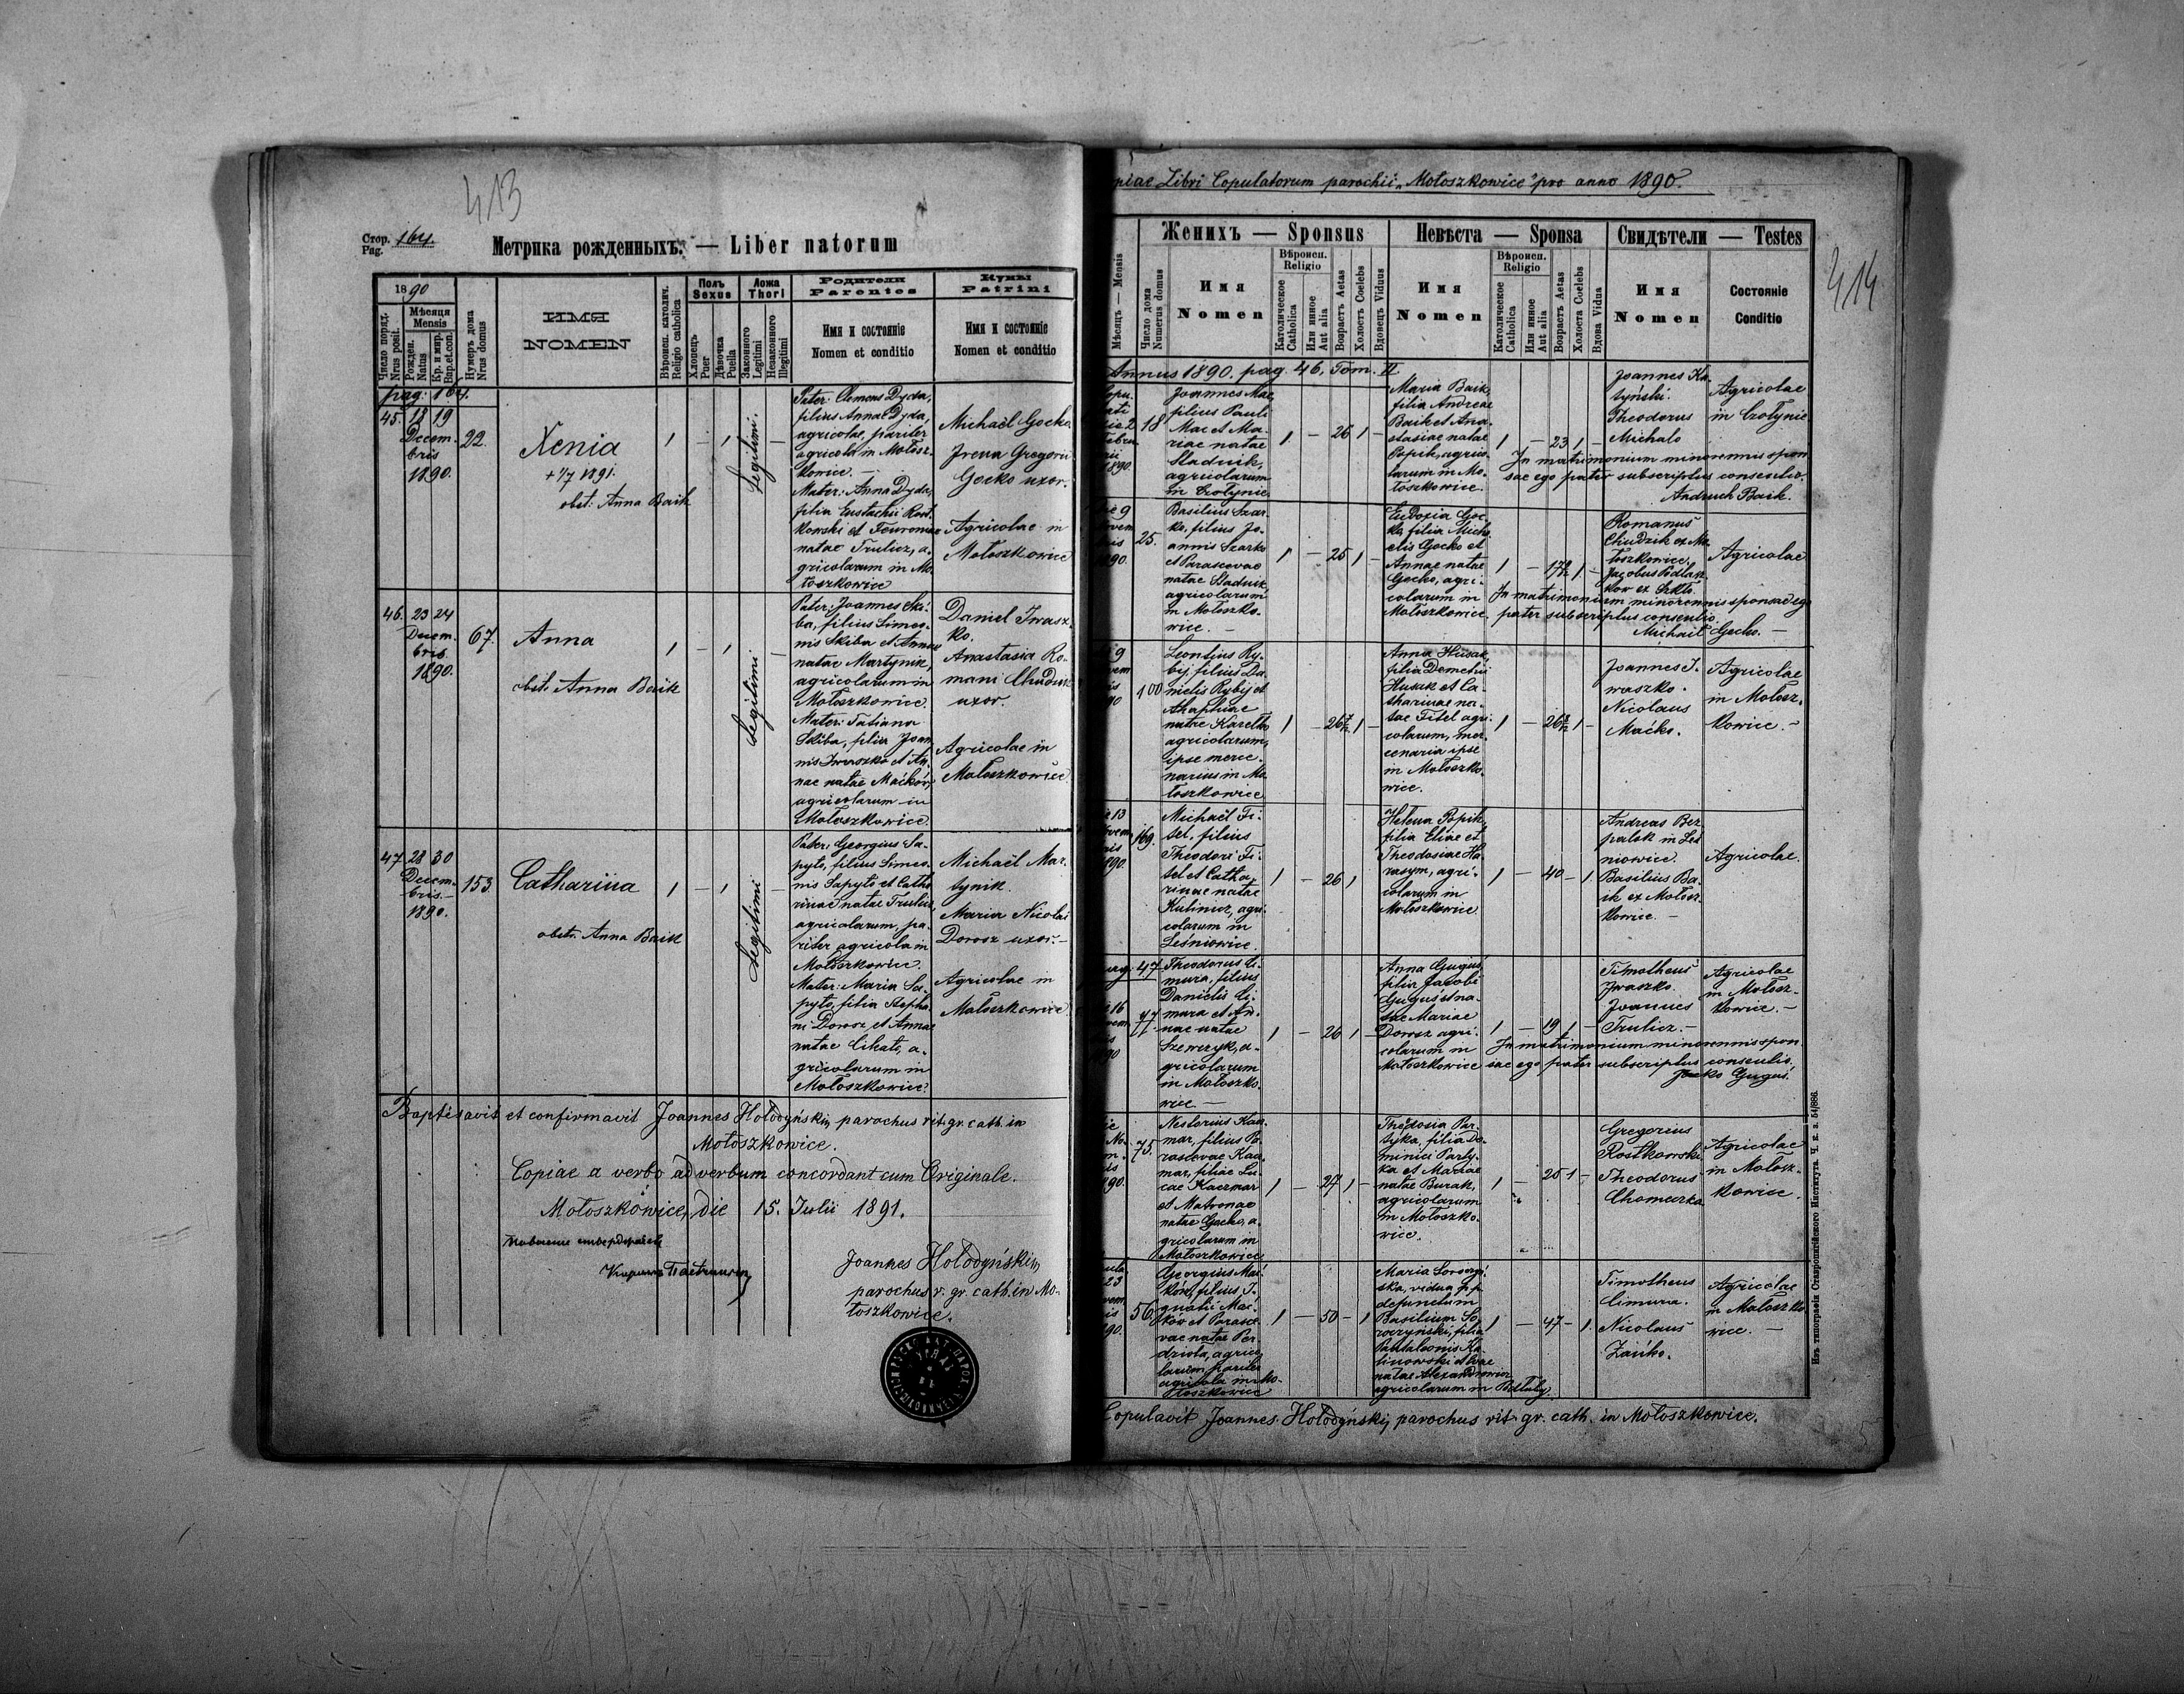 413
Стор. 164.
Pag.
Метрика рожденныхъ. — Liber natorum
1890
Число поряд.
Nrus posit.
Мѣсяця
Mensis
Рожден.
Natus
Кр. и мир.
Bap. et con.
Нумеръ дома
Nrus domus
ИМЯ
NOMEN
Вѣроисп. католич.
Religio catholica
Полъ
Sexus
Хлопецъ
Puer
Дѣвочка
Puella
Ложа
Thori
Законного
Legitimi
Незаконного
Illegitimi
Родители
Parentes
Имя и состояніе
Nomen et conditio
Кумы
Patrini
Имя и состояніе
Nomen et conditio
pag: 164.
45. 18 19
Decem-
bris
1890.
22.
Xenia
obst: Anna Baik
1 — 1 —
Legitimi.
Pater: Clemens Dyda,
filius Annae Dyda,
agricolae, pariter
agricola in Mołosz-
kowice. —
Mater: Anna Dyda,
filia Eustachii Rost-
kowski et Feuroniae
natae Trulicz, a-
gricolarum in Mo-
łoszkowice
Michaël Gocko.
Irena Gregorii
Gocko uxor.
Agricolae in
Mołoszkowice
46. 23 24
Decem-
bris
1890.
67.
Anna
obst. Anna Baik
1 — 1 —
Legitimi
Pater: Joannes Ski-
ba, filius Simeo-
nis Skiba et Annae
natae Martynik,
agricolarum in
Mołoszkowice.
Mater: Tatiana
Skiba, filia Joan-
nis Iwaszko et An-
nae natae Maćków,
agricolarum in
Mołoszkowice.
Daniel Iwasz-
ko.
Anastasia Ro-
mani Chudzik
uxor.
Agricolae in
Mołoszkowice
47. 28 30
Decem-
bris.
1890.
153
Catharina
obstr. Anna Baik
1 — 1 —
Legitimi
Pater: Georgius Sa-
pyto, filius Simeo-
nis Sapyto et Catha-
rinae natae Trulicz,
agricolarum, pa-
riter agricola in
Mołoszkowice.
Mater: Maria Sa-
pyto, filia Stepha-
ni Dorosz et Annae
natae Cikało, a-
gricolarum in
Mołoszkowice.
Michaël Mar-
tynik.
Maria Nicolai
Dorosz uxor. —
Agricolae in
Mołoszkowice
Baptisavit et confirmavit Joannes Hołodyńskij parochus rit. gr. cath. in
Mołoszkowice.
Copiae a verbo ad verbum concordant cum Originale.
Mołoszkowice, die 15. Julii 1891.
Joannes Hołodyńskij
parochus r. gr. cath. in Mo-
łoszkowice.
Libri Copulatorum parochii „Mołoszkowice" pro anno 1890.
414
Мѣсяць — Mensis
Число дома
Numerus domus
Женихъ — Sponsus
Имя
Nomen
Вѣроисп.
Religio
Католическое
Catholica
Или инное
Aut alia
Возрастъ Aetas
Холостъ Coelebs
Вдовецъ Viduus
Невѣста — Sponsa
Имя
Nomen
Вѣроисп.
Religio
Католическое
Catholica
Или инное
Aut alia
Возрастъ Aetas
Холоста Coelebs
Вдова Vidua
Свидѣтели — Testes
Имя
Nomen
Состояніе
Conditio
Annus 1890. pag. 46. Tom. II.
18
Joannes Mac,
filius Pauli
Mac et Ma-
riae natae
Stadnik,
agricolarum
in Czołynie
1 — 26 1 —
Maria Baik,
filia Andreae
Baik et Ana-
stasiae natae
Popik, agrico-
larum in Mo-
łoszkowice.
1 — 23 1 —
Theodorus
Michalo
Agricolae
in Czołynie
In matrimonium minorennis spon-
sae ego pater subscriptus consentio.
Andruch Baik.
25.
Basilius Szar-
ko, filius Jo-
annis Szarko
et Parascevae
natae Stadnik,
agricolarum
in Mołoszko-
wice. —
1 — 25 1 —
Eudoxia Goc-
ko, filia Micha-
elis Gocko et
Annae natae
Gocko, agri-
colarum in
Mołoszkowice.
Romanus
Chudzik ex Mo-
łoszkowice.
Agricolae
In matrimonium minorennis sponsae ego
pater subscriptus consentio.
Michaił Gocko. —
100
Leontius Ry-
bij, filius Da-
nielis Rybij et
Ahaphiae
natae Karetko
agricolarum,
ipse merce-
narius in Mo-
łoszkowice
Anna Husak,
filia Demetrii
Husak et Ca-
tharinae na-
tae Fitel agri-
colarum, mer-
cenaria ipse
in Mołoszko-
wice.
Joannes I-
waszko.
Nicolaus
Maćko.
Agricolae
in Mołosz-
kowice. —
169.
Michaël Fi-
tel, filius
Theodori Fi-
tel et Catha-
rinae natae
Kulinicz, agri-
colarum in
Leśniowice.
1 — 26 1
Helena Popik,
filia Eliae et
Theodosiae Ha-
rasym, agri-
colarum in
Mołoszkowice
1 — 40 — 1
Andreas Bez-
palok in Leś-
niowice.
Basilius Ba-
ik ex Mołosz-
kowice. —
Agricolae.
pag. 47.
77
Theodorus Ci-
mura, filius
Danielis Ci-
mura et An-
nae natae
Szewczyk, a-
gricolarum
in Mołoszko-
wice —
1 — 26 1 —
Anna Guguś
filia Jacobi
Guguś et na-
tae Mariae
Dorosz agri-
colarum in
Mołoszkowice
1 — 19 1 —
Timotheus
Iwaszko.
Joannes
Trulicz. —
Agricolae
in Mołosz-
kowice. —
In matrimonium minorennis spon-
sae ego pater subscriptus consentio.
Jacko Guguś.
75.
Nestorius Kacz-
mar, filius Pa-
rascevae Kacz-
mar, filiae Lu-
cae Kaczmar
et Matronae
natae Gocko, a-
gricolarum in
Mołoszkowice
1 — 27 1 —
Theodosia Par-
tyka, filia Do-
minici Party-
ka et Mariae
natae Burak,
agricolarum
in Mołoszko-
wice.
1 — 25 1 —
Gregorius
Rostkowski
Theodorus
Chomeczka
Agricolae
in Mołosz-
kowice.
56.
Georgius Mać-
ków, filius I-
gnatii Mać-
ków et Parasce-
vae natae Per-
dzioła, agrico-
larum, pariter
agricola in Mo-
łoszkowice
1 — 50 — 1
vidua p.
defunctum
Basilium So-
roczyński, filia
Pantaleonis Ka-
linowski et Evae
natae Alexandrowicz
agricolarum in
1 — 47 — 1
Timotheus
Cimura.
Nicolaus
Zaiko.
Agricolae
in Mołoszko-
wice. —
Copulavit Joannes Hołodyńskij parochus rit. gr. cath. in Mołoszkowice.
Изъ типографіи Ставропигійского Института. Ч. к. з. 54/886.